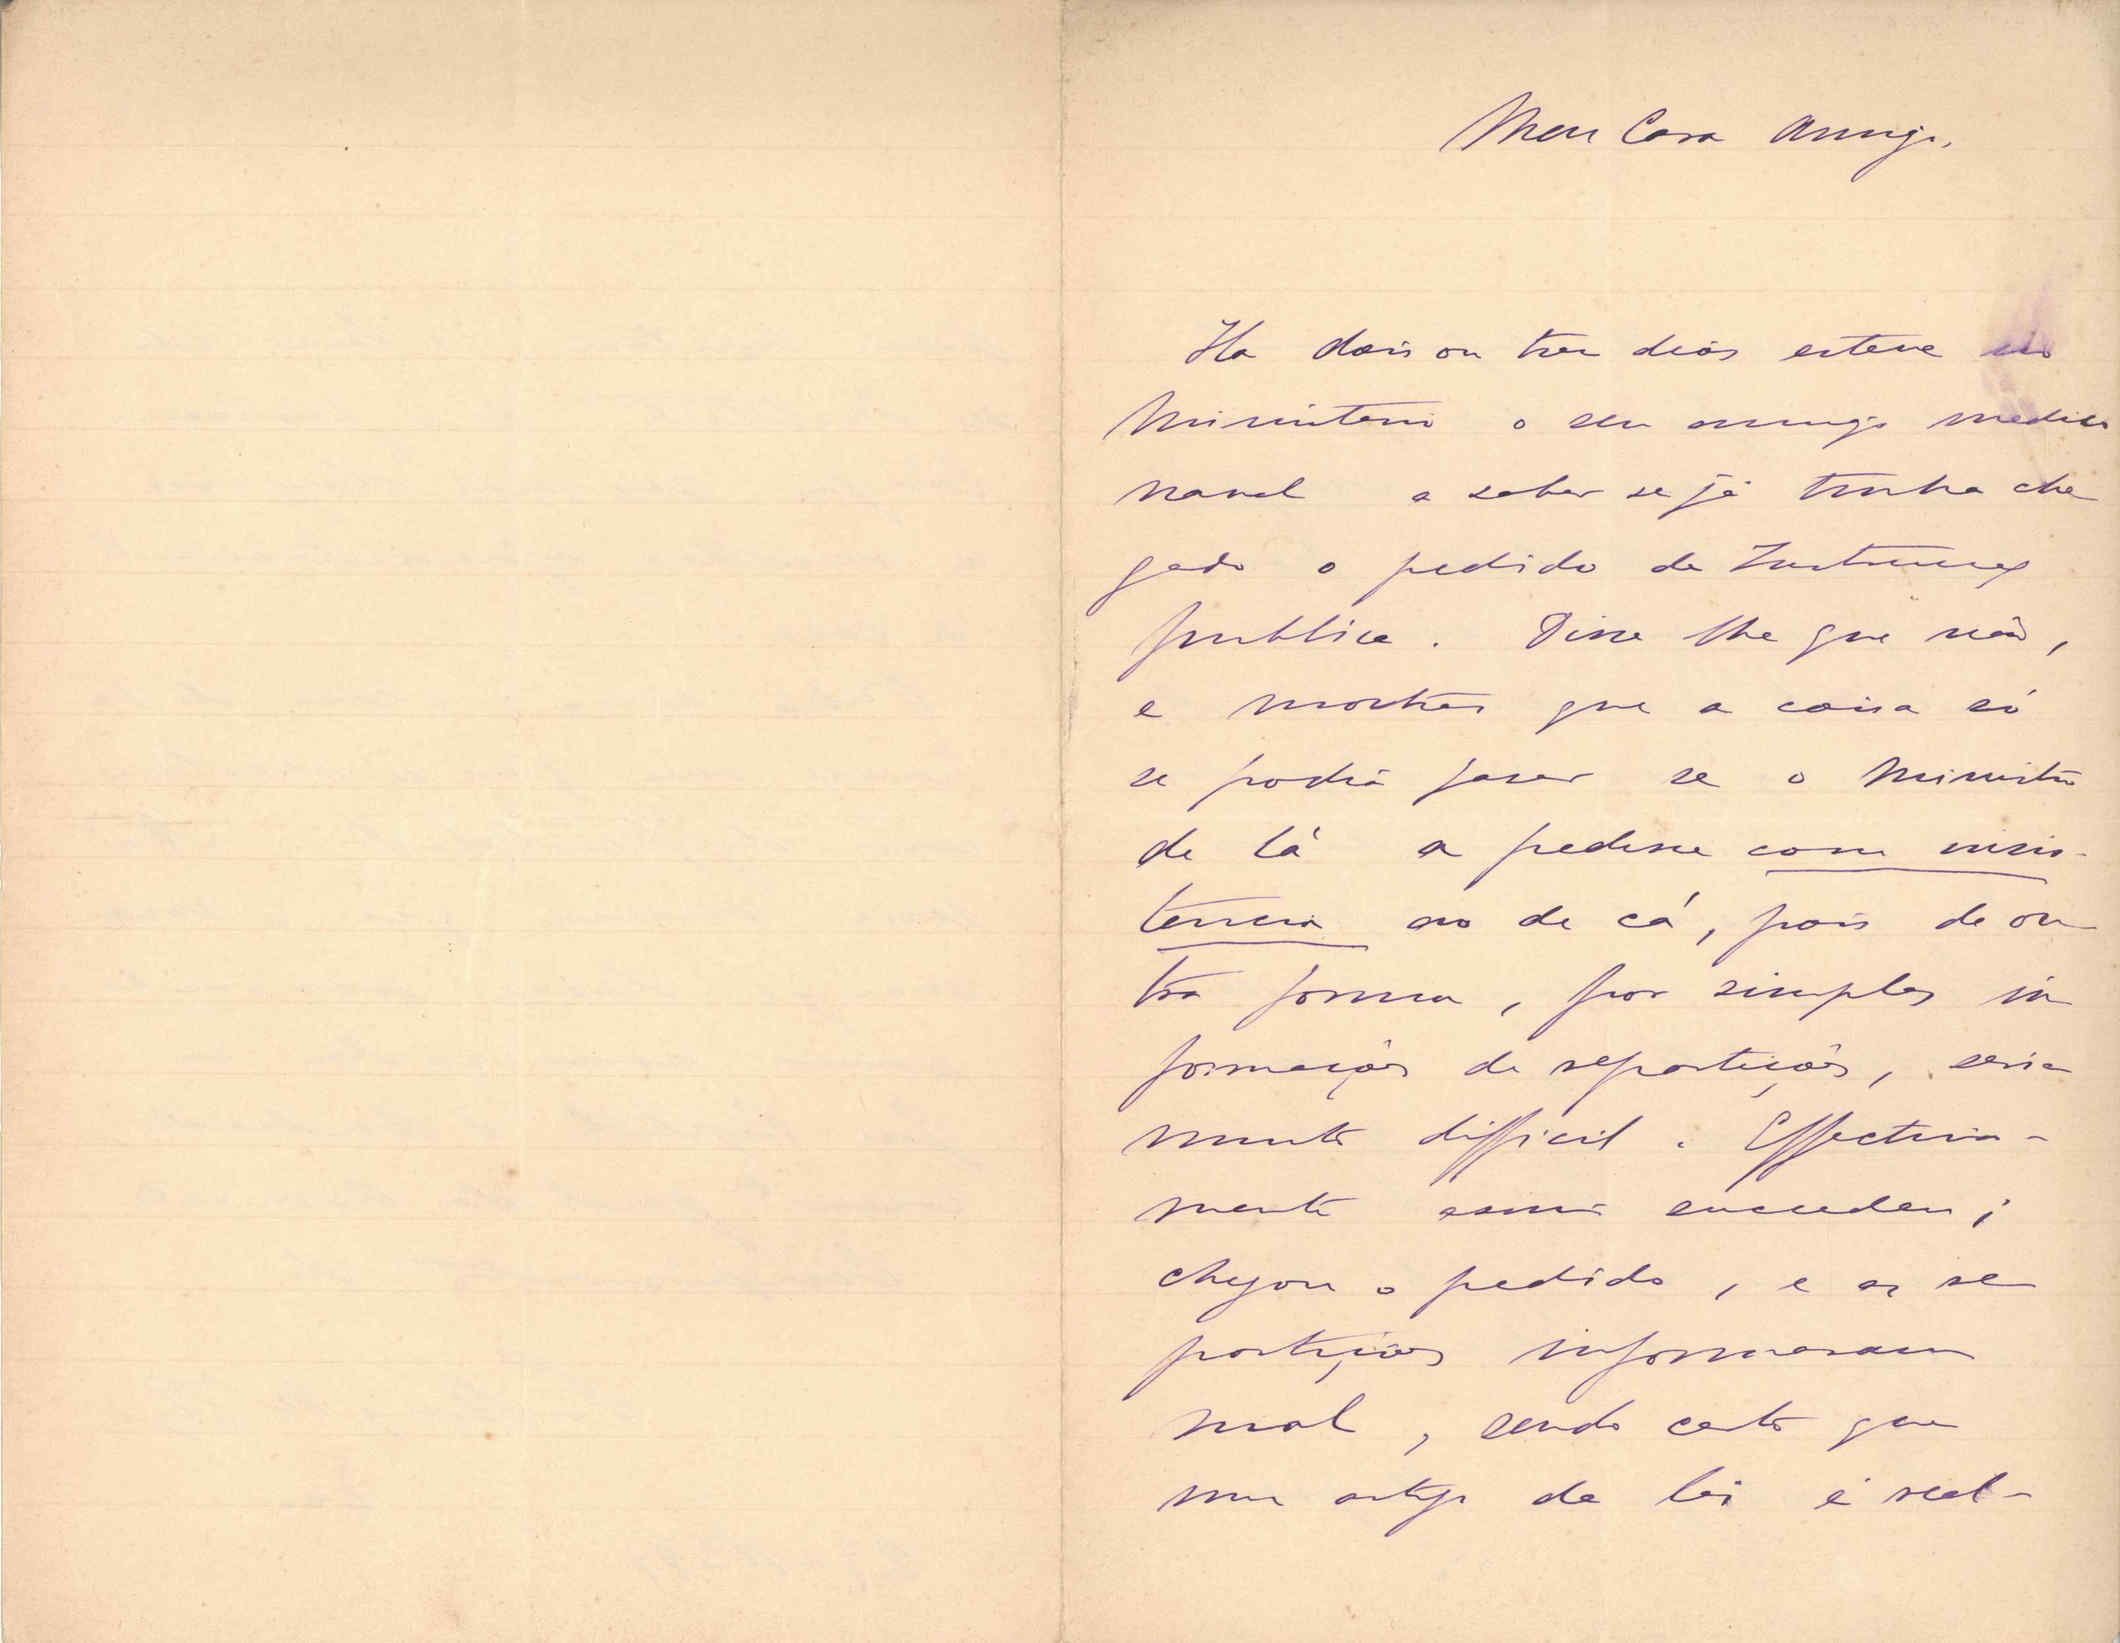 Meu Caro Amigo,
Ha dois ou tres dias esteve no
Ministerio o seu amigo medico
naval a saber se já tinha che
gado o pedido da Instrucção
publica. Disse lhe que não,
e mostrei que a coisa só
se podia fazer se o Ministro
de lá a pedisse com insis-
tencia ao de cá, pois de ou
tra forma, por simples in
formações de repartições, seria
muito difficil. Effectiva-
mente assim succedeu;
chegou o pedido, e as re
partições informaram
mal, sendo certo que
um artigo da lei é real-